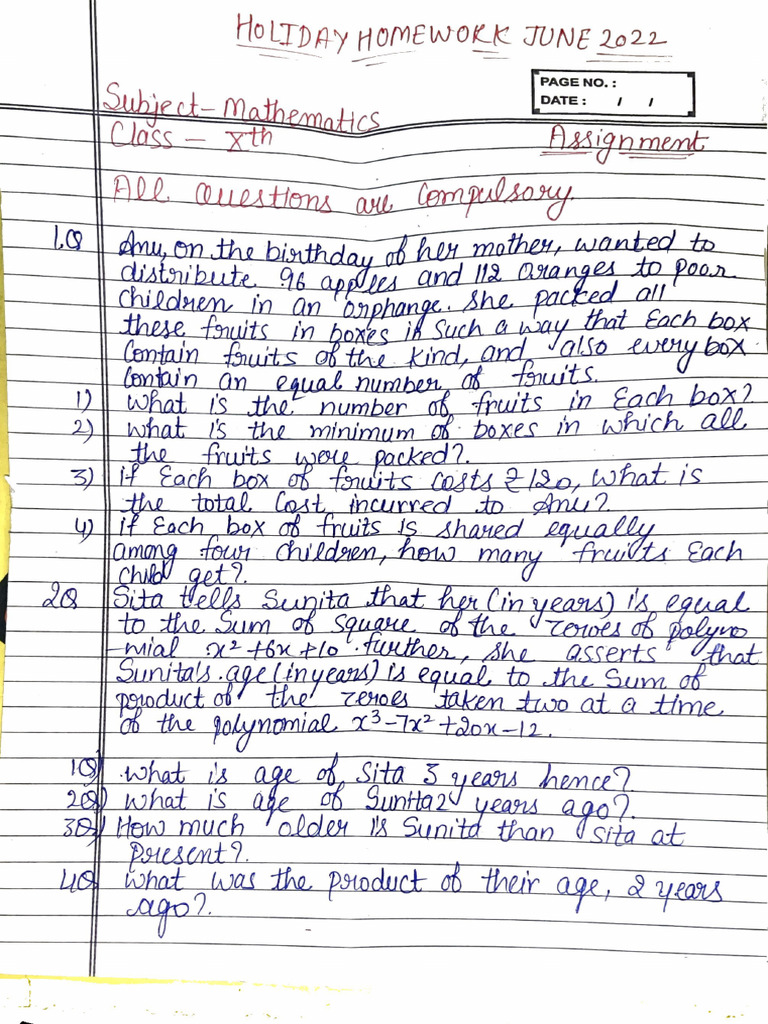 HOLIDAY HOMEWORK JUNE 2022
PAGE NO. :
DATE : / /
Subject - Mathematics
Class - Xth
Assignment
All Questions are Compulsory.
1.Q Anu, on the birthday of her mother, wanted to
distribute 96 apples and 112 oranges to poor
children in an orphange. She packed all
these fruits in boxes in such a way that Each box
Contain fruits of the kind, and also every box
Contain an equal number of fruits.
1) What is the number of fruits in Each box?
2) What is the minimum of boxes in which all
the fruits were packed?
3) if Each box of fruits costs ₹ 120, what is
the total Cost incurred to Anu?
4) if Each box of fruits is shared equally
among four children, how many fruits Each
child get?
2Q Sita tells Sunita that her (in years) is equal
to the Sum of square of the zeroes of polyno
-mial x² + 6x + 10. further, she asserts that
Sunita's age (in years) is equal to the Sum of
product of the zeroes taken two at a time
of the polynomial x³ - 7x² + 20x - 12.
1Q) What is age of Sita 3 years hence?
2Q) What is age of Sunita 2 years ago?
3Q) How much older is Sunita than Sita at
present?
4Q What was the product of their age, 2 years
ago?